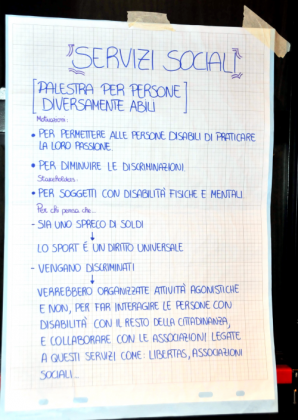 "SERVIZI SOCIALI"
[PALESTRA PER PERSONE
DIVERSAMENTE ABILI]
Motivazioni:
• PER PERMETTERE ALLE PERSONE DISABILI DI PRATICARE
LA LORO PASSIONE.
• PER DIMINUIRE LE DISCRIMINAZIONI.
Stakeholders:
• PER SOGGETTI CON DISABILITÀ FISICHE E MENTALI.
Per chi pensa che...
- SIA UNO SPRECO DI SOLDI
↓
LO SPORT É UN DIRITTO UNIVERSALE
- VENGANO DISCRIMINATI
↓
VERREBBERO ORGANIZZATE ATTIVITÀ AGONISTICHE
E NON, PER FAR INTERAGIRE LE PERSONE CON
DISABILITÀ CON IL RESTO DELLA CITTADINANZA,
E COLLABORARE CON LE ASSOCIAZIONI LEGATE
A QUESTI SERVIZI COME: LIBERTAS, ASSOCIAZIONI
SOCIALI...